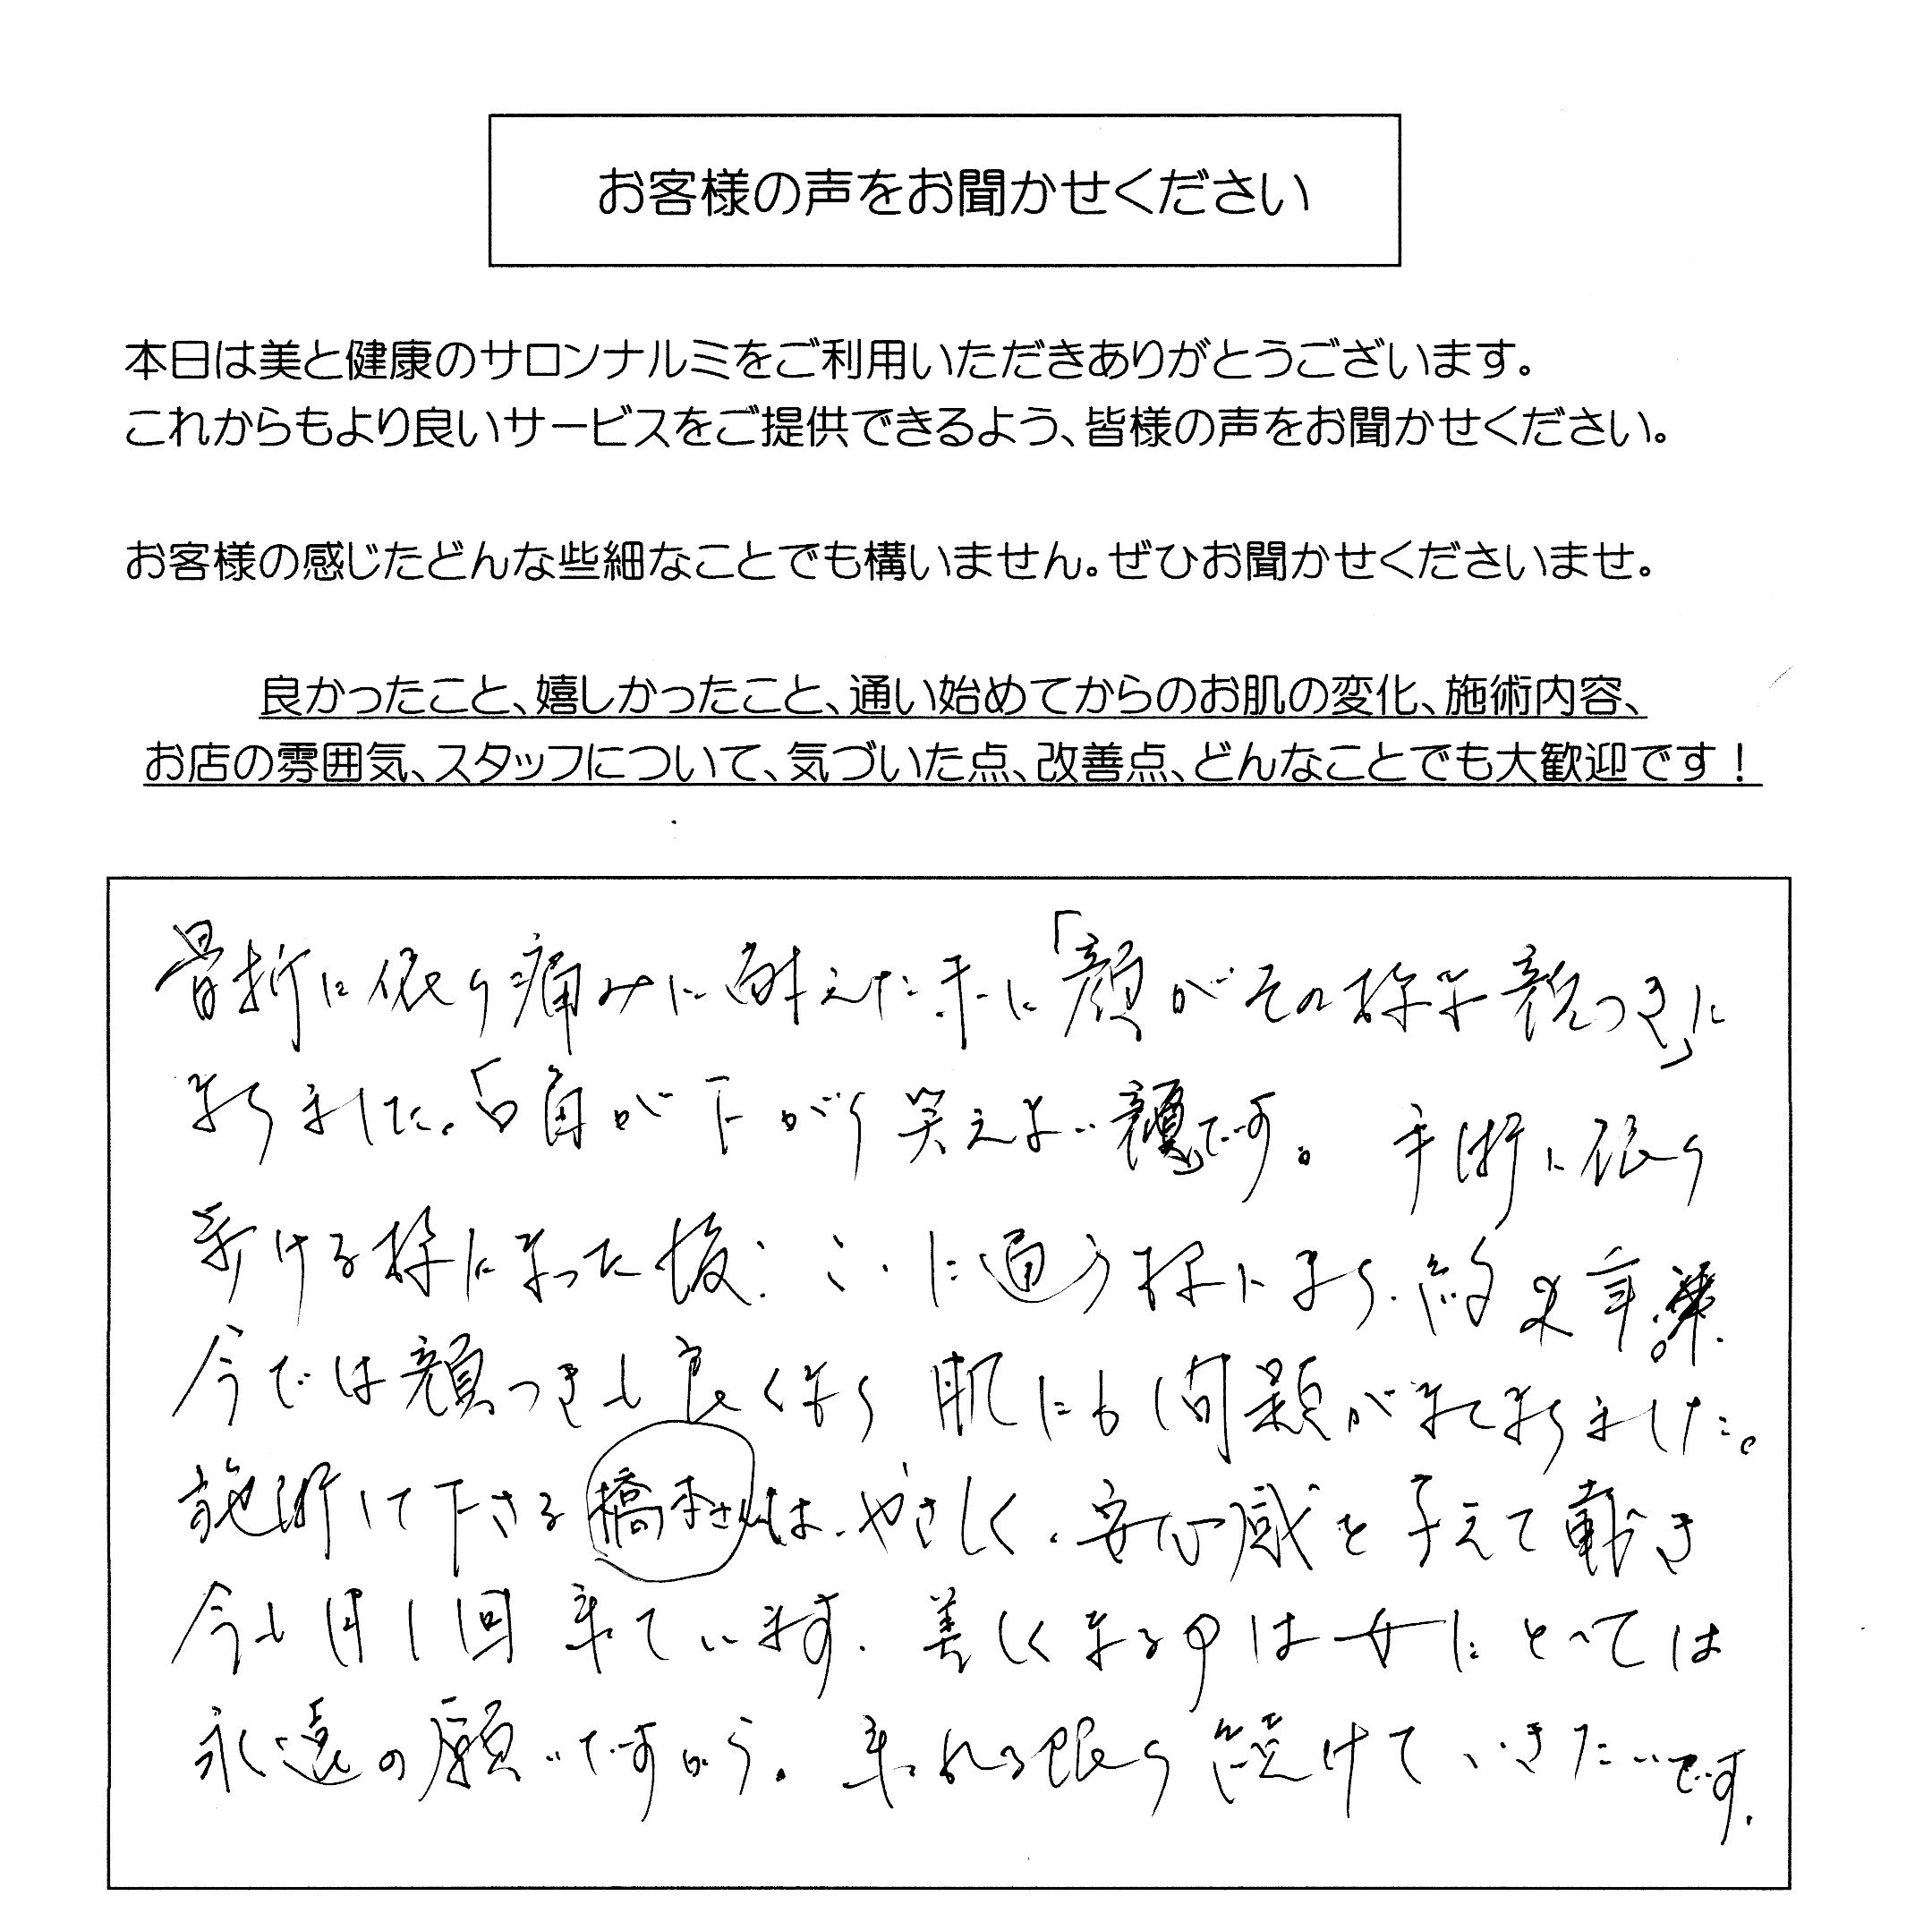 お客様の声をお聞かせください
本日は美と健康のサロンナルミをご利用いただきありがとうございます。
これからもより良いサービスをご提供できるよう、皆様の声をお聞かせください。
お客様の感じたどんな些細なことでも構いません。ぜひお聞かせくださいませ。
良かったこと、嬉しかったこと、通い始めてからのお肌の変化、施術内容、
お店の雰囲気、スタッフについて、気づいた点、改善点、どんなことでも大歓迎です！
骨折に依り痛みに耐えた 「顔がその様な顔つき」に
なりました。「口角が下がり笑えない顔」です。 手術に依り
歩ける様になった後、ここに通う様になり、約 年
今では顔つきも良くなり 肌にも問題がなくなりました。
施術して下さる橋本さんは、やさしく、安心感を与えて戴き
今も月1回来ています。美しくなるのは女にとっては
永遠の願いですから。来れる限り続けていきたいです。